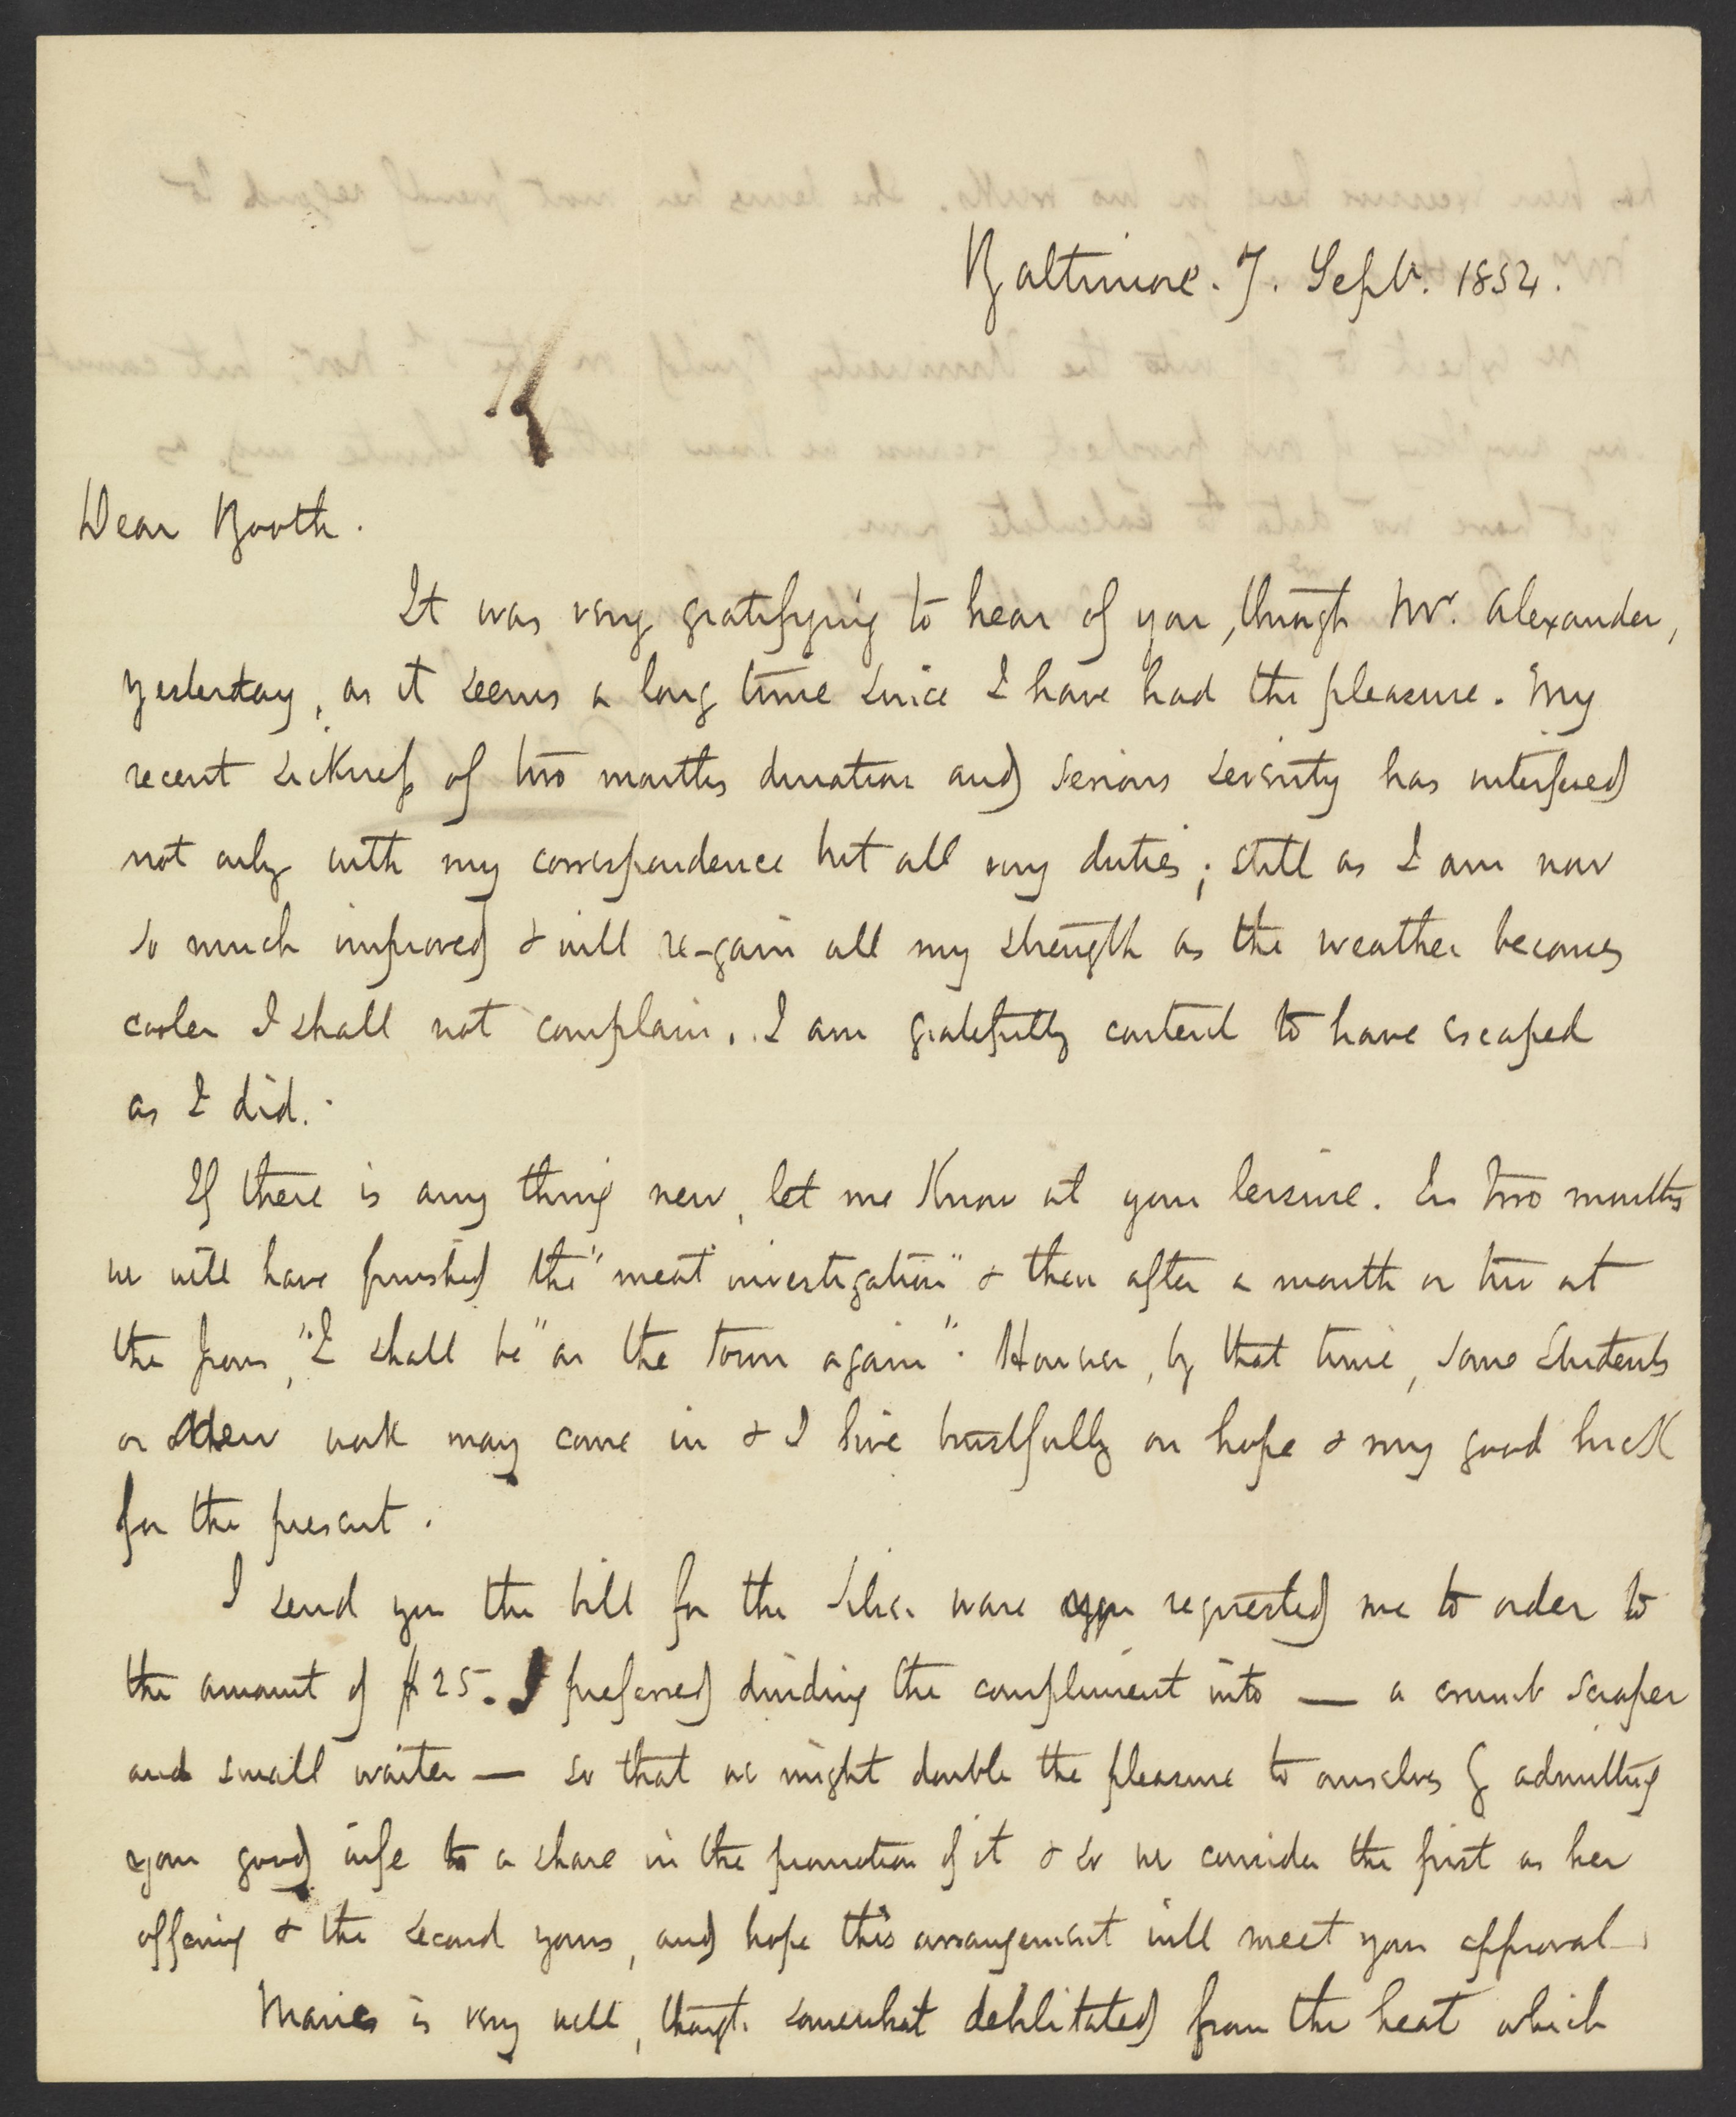 Baltimore. 7. Septr. 1852.
Dear Booth.
It was very gratifying to hear of you, through Mr. Alexander,
yesterday, as it seems a long time since I have had the pleasure. My
recent sickness of two months duration and serious severity has interfered
not only with my correspondence but all my duties; still as I am now
so much improved & will re-gain all my strength as the weather becomes
cooler I shall not complain. I am gratefully content to have escaped
as I did.
If there is any thing new, let me Know at your leisure. In two months
we will have finished the "meat investigation" & then after a month or two at
the press, "I shall be "on the town again". However, by that time, some Students
or other work may come in & I live trustfully on hope & my good luck
for the present.
I send you the bill for the Silver ware you requested me to order to
the amount of $25. I preferred dividing the compliment into — a crumb scraper
and small waiter — so that we might double the pleasure to ourselves by admitting
your good wife to a share in the promotion of it & so we consider the first as her
offering & the second yours, and hope this arrangement will meet your approval.
Maria is very well, though somewhat debilitated from the heat which